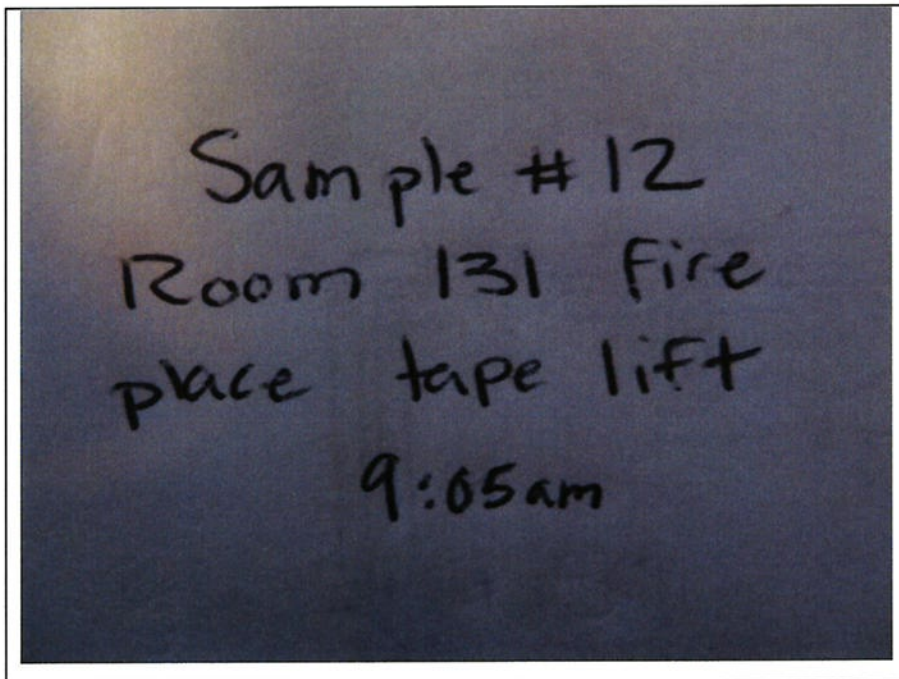 Sample # 12
Room 131 fire
place tape lift
9:05am